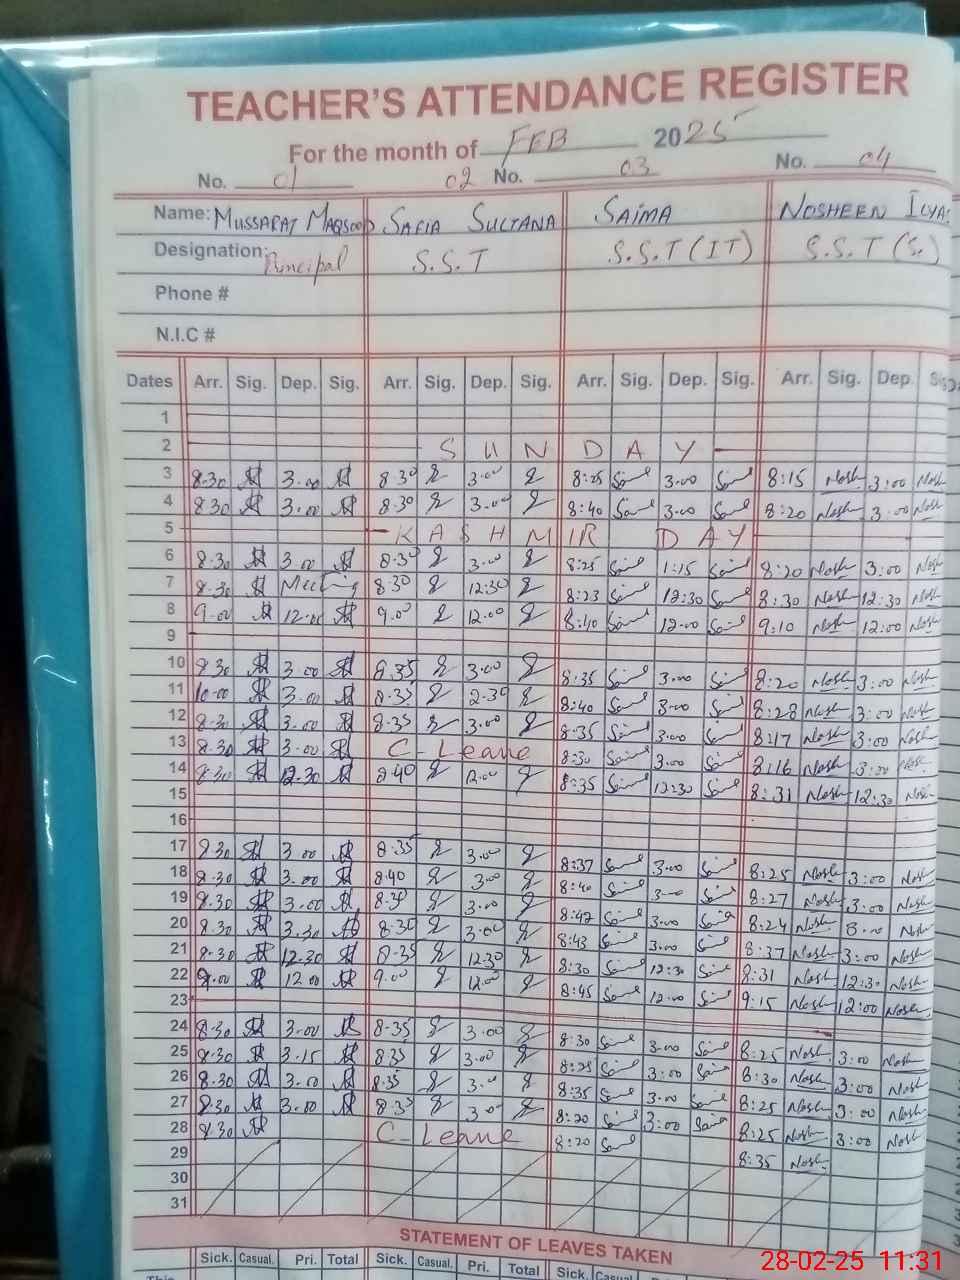 TEACHER'S ATTENDANCE REGISTER
For the month of FEB 2025
No. 01 02 No. 03 No. 04
Name: MUSSARAT MAQSOOD SAFIA SULTANA SAIMA NOSHEEN ILYAS
Designation: Principal S.S.T S.S.T (IT) S.S.T (S.)
Phone #
N.I.C #
Dates Arr. Sig. Dep. Sig. Arr. Sig. Dep. Sig. Arr. Sig. Dep. Sig. Arr. Sig. Dep.
1
2 SUNDAY
3 8.30 3.00 8.30 3.00 8:25 3.00 8:15 Nosh 3:00 Nosh
4 8.30 3.00 8.30 3.00 8:40 3.00 8:20 Nosh 3:00 Nosh
5 KASHMIR DAY
6 8.30 3.00 8.30 3.00 8:25 1:15 8:20 Nosh 3:00 Nosh
7 8.30 Meeting 8.30 12:30 8:23 12:30 8:30 Nosh 12:30 Nosh
8 9.00 12.00 9.00 12.00 8:40 12.00 9:10 Nosh 12:00 Nosh
9
10 8.30 3.00 8.35 3.00 8:35 3.00 8:20 Nosh 3:00 Nosh
11 10.00 3.00 8.35 2.30 8:40 3.00 8:28 Nosh 3:00 Nosh
12 8.30 3.00 8.35 3.00 8:35 3.00 8:17 Nosh 3:00 Nosh
13 8.30 3.00 C-Leave 8:30 3.00 8:16 Nosh 3:00 Nosh
14 8.30 12.30 8.40 12.00 8:35 12:30 8:31 Nosh 12:30 Nosh
15
16
17 8.30 3.00 8.35 3.00 8:37 3.00 8:25 Nosh 3:00 Nosh
18 8.30 3.00 8.40 3.00 8:40 3.00 8:27 Nosh 3:00 Nosh
19 8.30 3.00 8.30 3.00 8:42 3.00 8:24 Nosh 3.00 Nosh
20 8.30 3.30 8.30 3.00 8:43 3.00 8:37 Nosh 3:00 Nosh
21 8.30 12.30 8.35 12.30 8:30 12:30 8:31 Nosh 12:30 Nosh
22 9.00 12.00 9.00 12.00 8:45 12.00 9:15 Nosh 12:00 Nosh
23
24 8.30 3.00 8.35 3.00 8:30 3.00 8:25 Nosh 3:00 Nosh
25 8.30 3.15 8.35 3.00 8:25 3:00 8:30 Nosh 3:00 Nosh
26 8.30 3.00 8.35 3.00 8:35 3.00 8:25 Nosh 3:00 Nosh
27 8.30 3.00 8.35 3.00 8:20 3:00 8:25 Nosh 3:00 Nosh
28 8.30 C-Leave 8:20 8:35 Nosh
29
30
31
STATEMENT OF LEAVES TAKEN
Sick. Casual. Pri. Total Sick. Casual. Pri. Total Sick. Casual.
28-02-25 11:31